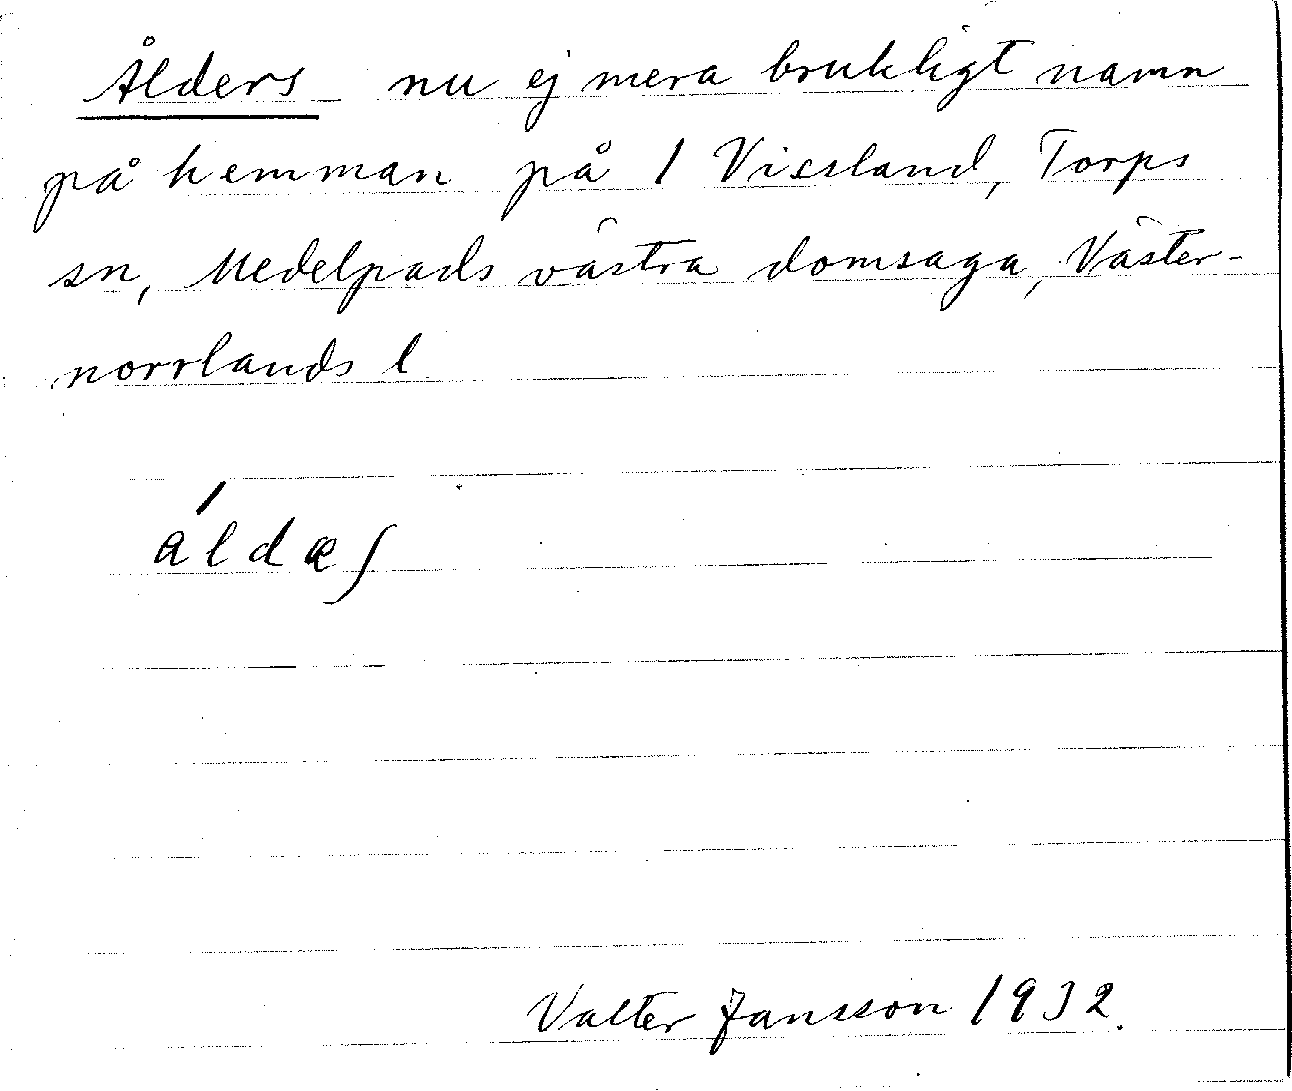 Ålders nu ej mera brukligt namn
på hemman på 1 Viesland, Torps
sn, Medelpads västra domsaga, Väster-
norrlands l
áldæʃ
Valter Jansson 1932.